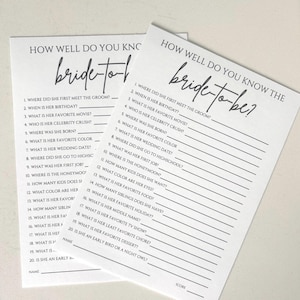 HOW WELL DO YOU KNOW
bride-to-b
1. WHERE DID SHE FIRST MEET THE GROOM?
2. WHEN IS HER BIRTHDAY?
3. WHAT IS HER FAVORITE MOVIE?
4. WHO IS HER CELEBRITY CRUSH?
5. WHERE WAS SHE BORN?
6. WHAT IS HER FAVORITE COLOR
7. WHAT IS HER WEDDING DATE?
8. WHERE DID SHE GO TO
9. WHAT WAS HER FIRST JOB?
10. WHERE IS THE HONEYMOON
11. HOW MANY KIDS DOES
12. WHAT COLOR ARE HER
13. HOW MANY SIBLING
14. WHAT IS HER FAVO
15. WHAT IS HER
16. WHAT IS HER
17. WHAT IS HER
18. WHAT IS HER
19. WHAT IS HER
20. IS SHE AN EARLY
NAME
HOW WELL DO YOU KNOW THE
bride-to-be?
1. WHERE DID SHE FIRST MEET THE GROOM?
2. WHEN IS HER BIRTHDAY?
3. WHAT IS HER FAVORITE MOVIE?
4. WHO IS HER CELEBRITY CRUSH?
5. WHERE WAS SHE BORN?
6. WHAT IS HER FAVORITE COLOR?
7. WHAT IS HER WEDDING DATE?
8. WHERE DID SHE GO TO HIGHSCHOOL?
9. WHAT WAS HER FIRST JOB?
10. WHERE IS THE HONEYMOON?
11. HOW MANY KIDS DOES SHE WANT?
12. WHAT COLOR ARE HER EYES?
13. HOW MANY SIBLINGS DOES SHE HAVE?
14. WHAT IS HER FAVORITE FOOD?
15. WHAT IS HER MIDDLE NAME?
16. WHAT IS HER FAVORITE TV SHOW?
17. WHAT IS HER LEAST FAVORITE
18. WHAT IS HER FAVORITE
19. WHAT IS HER FAVORITE DESSERT?
20. IS SHE AN EARLY BIRD OR A NIGHT OWL?
NAME
SCORE